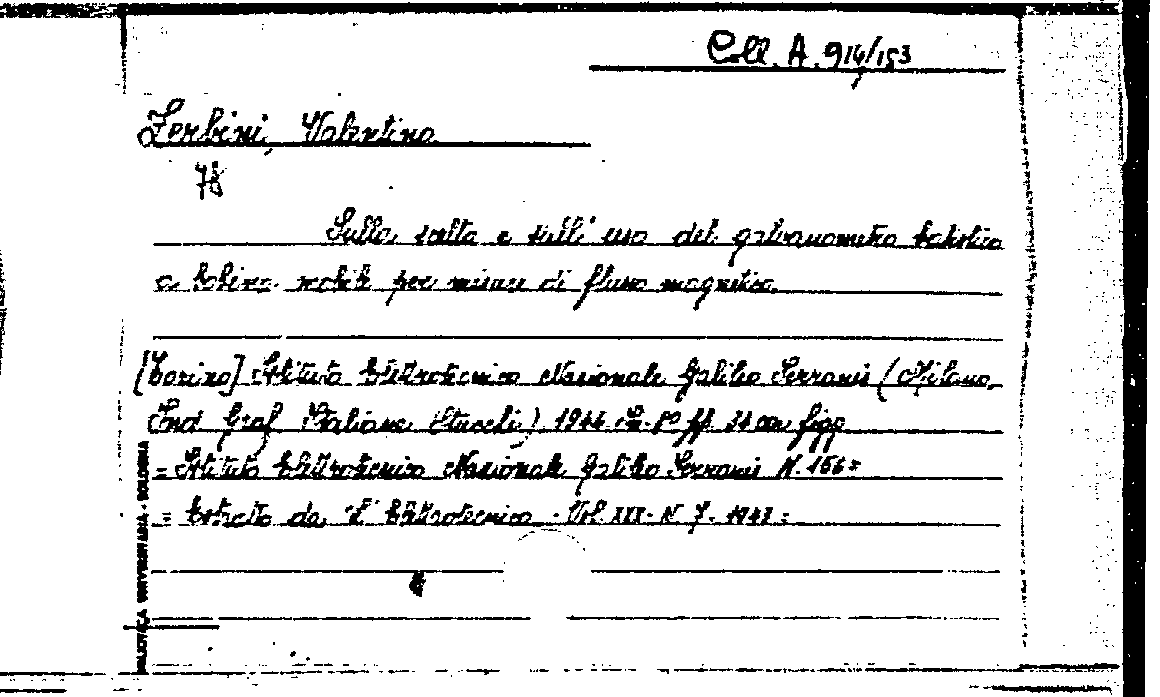 Coll. A. 914/153
Zerbini, Valentino
78
Sulla scelta e sull'uso del galvanometro balistico
a bobina mobile per misure di flusso magnetico.
[Torino] Istituto Elettrotecnico Nazionale Galileo Ferraris (Milano,
Ind. Graf. Italiane Stucchi) 1944 in-8° pp. 34 con figg.
= Istituto Elettrotecnico Nazionale Galileo Ferraris N. 166=
= Estratto da "L'Elettrotecnica - Vol. XXX - N. 7 - 1943 =
BIBLIOTECA UNIVERSITARIA - BOLOGNA